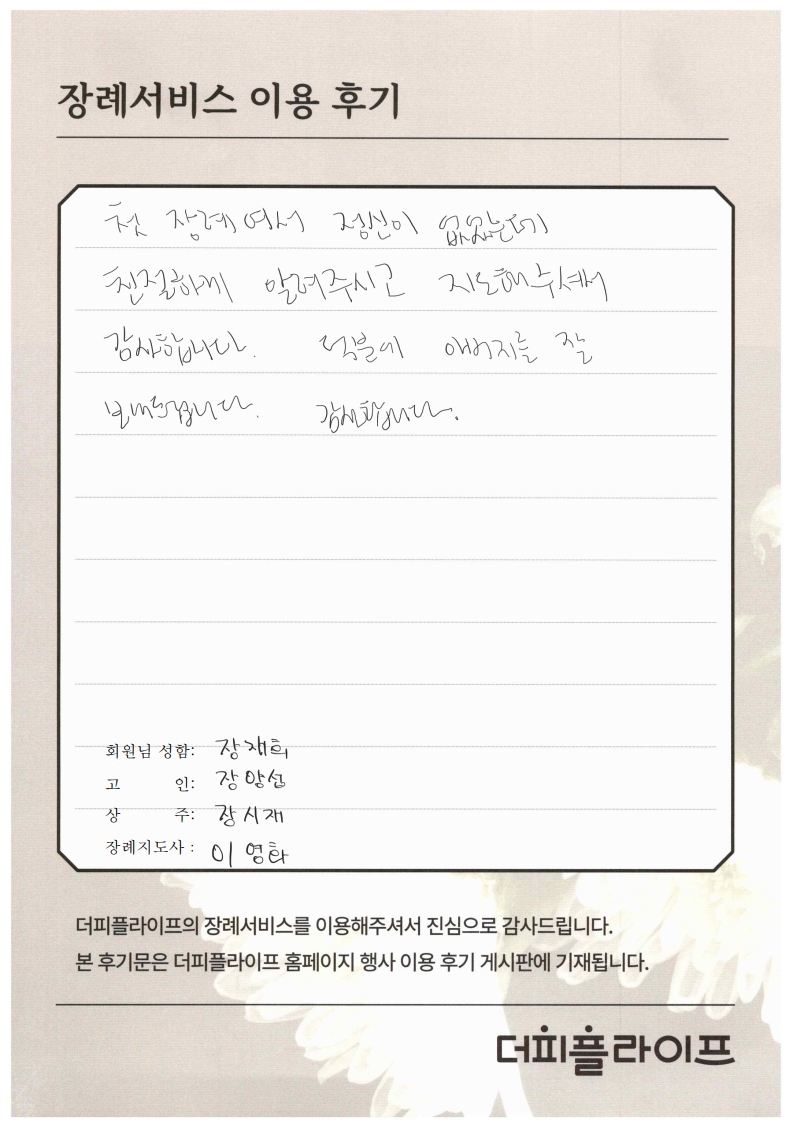 장례서비스 이용 후기
첫 장례여서 정신이 없었는데
친절하게 알려주시고 지도해주셔서
감사합니다. 덕분에 아버지를 잘
보내드립니다. 감사합니다.
회원님 성함: 장재희
고 인: 장양섭
상 주: 장시재
장례지도사 : 이영화
더피플라이프의 장례서비스를 이용해주셔서 진심으로 감사드립니다.
본 후기문은 더피플라이프 홈페이지 행사 이용 후기 게시판에 기재됩니다.
더피플라이프